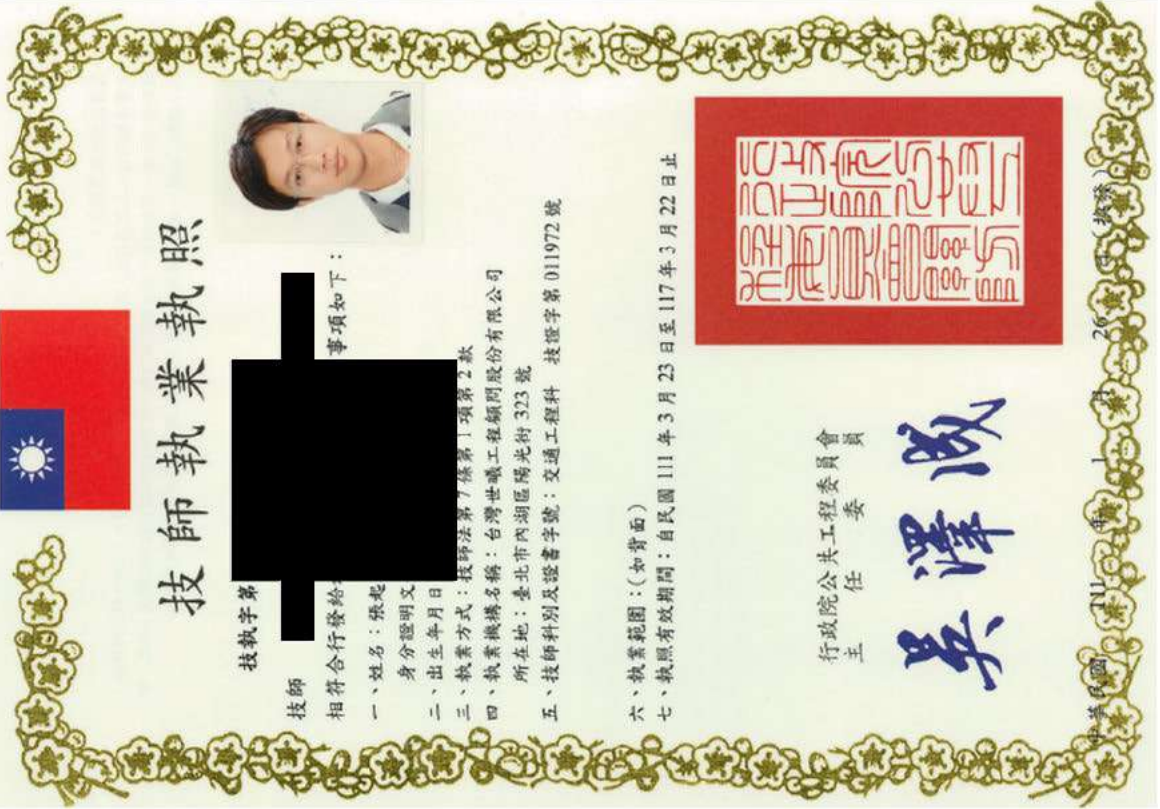 技師執業執照
技執字第
技師
相符合行發給 事項如下：
一、姓名：張起
身分證明文
二、出生年月日
三、執業方式：技師法第7條第1項第2款
四、執業機構名稱：台灣世曦工程顧問股份有限公司
所在地：臺北市內湖區陽光街323號
五、技師科別及證書字號：交通工程科 技證字第011972號
六、執業範圍：(如背面)
七、執照有效期間：自民國111年3月23日至117年3月22日止
行政院公共工程委員會
主任委員
吳澤成
中華民國 111 年 1 月 26 日(換發)